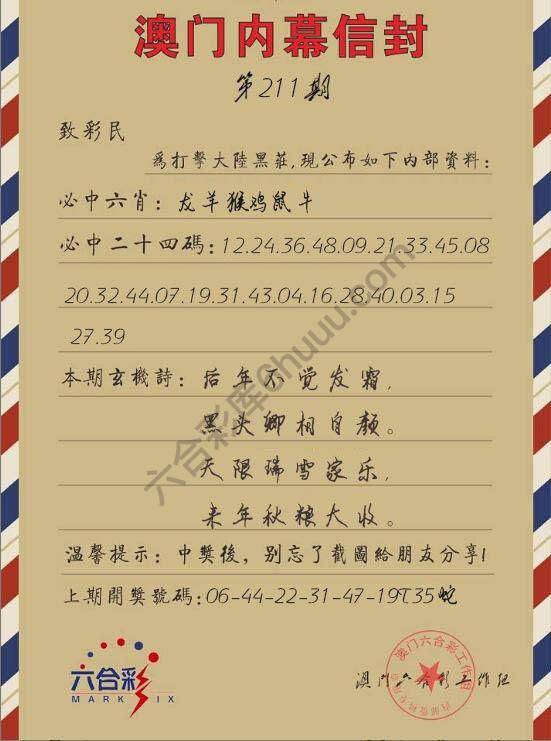 澳门内幕信封
第211期
致彩民
為打擊大陸黑莊,現公布如下內部資料:
必中六肖：龙羊猴鸡鼠牛
必中二十四碼:12.24.36.48.09.21.33.45.08
20.32.44.07.19.31.43.04.16.28.40.03.15
27.39
本期玄機詩：后年不觉发霜,
黑头卿相自颜。
天限瑞雪家乐,
来年秋粮大收。
温馨提示：中獎後，别忘了截圖給朋友分享!
上期開獎號碼:06-44-22-31-47-19T35蛇
六合彩
MARK SIX
澳门六合彩工作组
澳门六合彩工作组
六合彩库@huuu.com